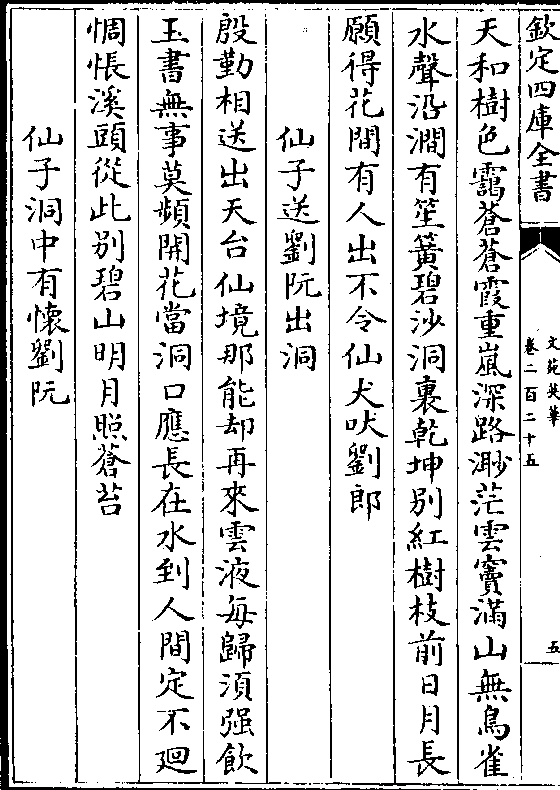 欽定四庫全書
文苑英華
卷二百二十五
五
天和樹色靄蒼蒼霞重嵐深路渺茫雲竇滿山無鳥雀
水聲沿澗有笙簧碧沙洞裏乾坤別紅樹枝前日月長
願得花間有人出不令仙犬吠劉郎
仙子送劉阮出洞
殷勤相送出天台仙境那能却再來雲液每歸須强飲
玉書無事莫頻開花當洞口應長在水到人間定不廻
惆悵溪頭從此別碧山明月照蒼苔
仙子洞中有懷劉阮